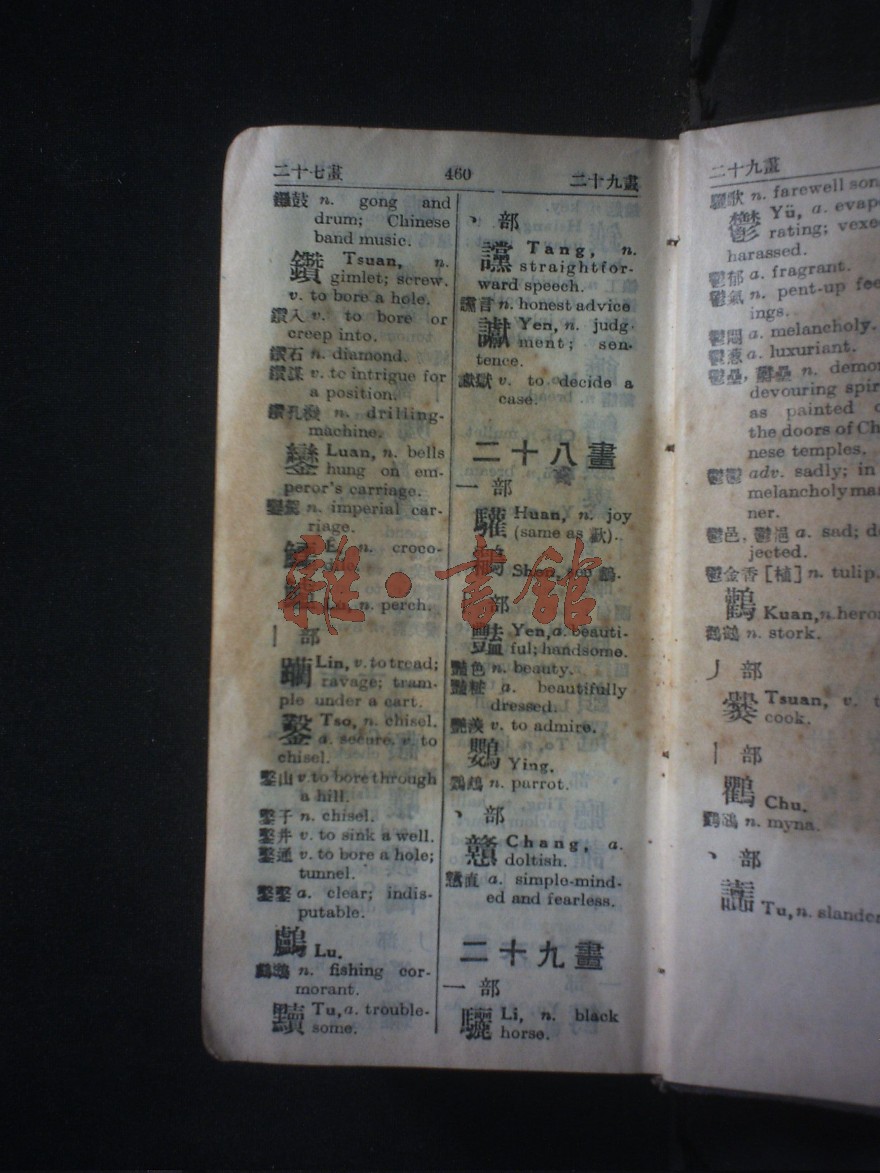 二十七畫 460 二十九畫
鑼鼓 n. gong and
drum; Chinese
band music.
鑽 Tsuan, n.
gimlet; screw.
v. to bore a hole.
鑽入 v. to bore or
creep into.
鑽石 n. diamond.
鑽謀 v. to intrigue for
a position.
鑽孔機 n. drilling-
machine.
鑾 Luan, n. bells
hung on em-
peror's carriage.
鑾駕 n. imperial car-
riage.
n. croco-
Lu, n. perch.
丨部
躪 Lin, v. to tread;
ravage; tram-
ple under a cart.
鑿 Tso, n. chisel.
a. secure. v. to
chisel.
鑿山 v. to bore through
a hill.
鑿子 n. chisel.
鑿井 v. to sink a well.
鑿通 v. to bore a hole;
tunnel.
鑿鑿 a. clear; indis-
putable.
鸕 Lu.
鸕鶿 n. fishing cor-
morant.
Tu, a. trouble-
some.
丶部
讜 Tang, n.
straightfor-
ward speech.
讜言 n. honest advice
讞 Yen, n. judg-
ment; sen-
tence.
讞獄 v. to decide a
case.
二十八畫
一部
驩 Huan, n. joy
(same as 歡).
see 鶴.
部
豔 Yen, a. beauti-
ful; handsome.
豔色 n. beauty.
豔粧 a. beautifully
dressed.
豔羨 v. to admire.
鸚 Ying.
鸚鵡 n. parrot.
丶部
戇 Chang, a.
doltish.
戇直 a. simple-mind-
ed and fearless.
二十九畫
一部
驪 Li, n. black
horse.
雜·書館
二十九畫
驪歌 n. farewell son
鬱 Yü, a. evap
rating; vexe
harassed.
鬱郁 a. fragrant.
鬱氣 n. pent-up fee
ings.
鬱悶 a. melancholy.
鬱蔥 a. luxuriant.
鬱壘, n. demo
devouring spir
as painted
the doors of Ch
nese temples.
鬱鬱 adv. sadly; in
melancholy ma
ner.
鬱邑, 鬱悒 a. sad; de
jected.
鬱金香 [植] n. tulip.
鸛 Kuan, n. hero
鸛鶴 n. stork.
丿部
爨 Tsuan, v. t
cook.
丨部
鸜 Chu.
鸜鵒 n. myna.
丶部
Tu, n. slander